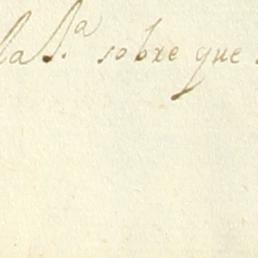 la S.ª sobre que